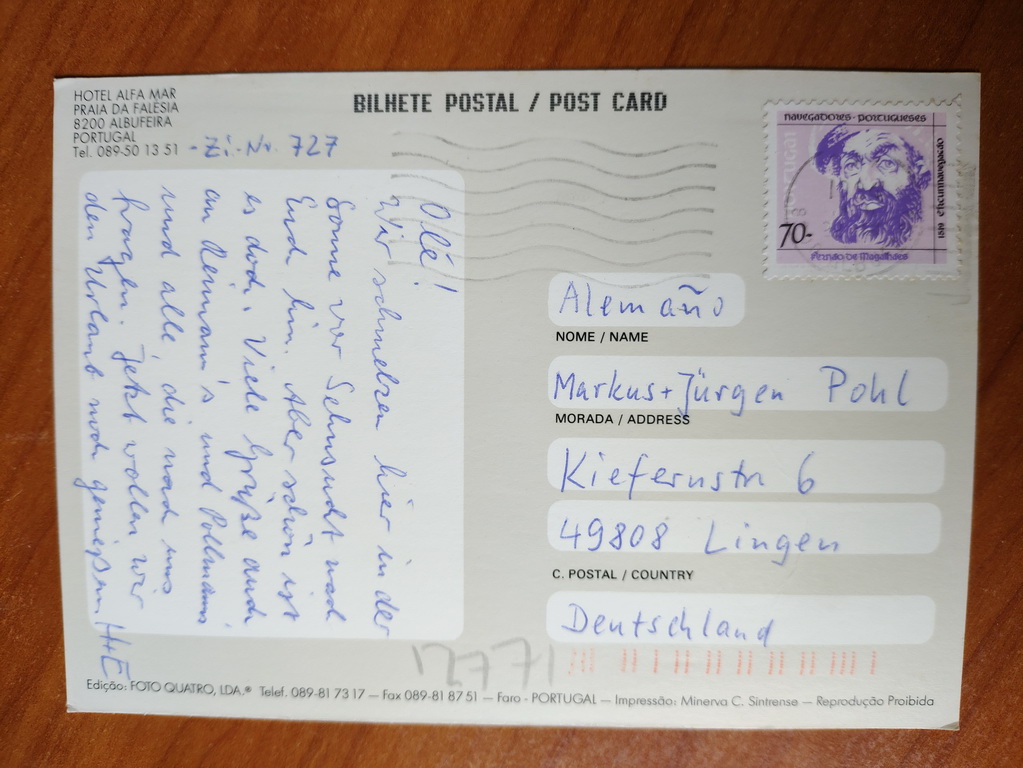 HOTEL ALFA MAR
PRAIA DA FALÉSIA
8200 ALBUFEIRA
PORTUGAL
Tel. 089-50 13 51 - Zi.-Nr. 727
BILHETE POSTAL / POST CARD
NAVEGADORES - PORTUGUESES
PORTUGAL
CIRCUM-NAVEGAÇÃO 1519
70-
FERNÃO DE MAGALHÃES
Olé!
Wir schmelzen hier in der
Sonne vor Sehnsucht nach
Euch hin. Aber schön ist
es doch. Viele Grüße auch
an Reimann's und Pollmanns
und alle, die nach uns
fragen. Jetzt wollen wir
den Urlaub noch genießen. H+E
Alemaño
NOME / NAME
Markus + Jürgen Pohl
MORADA / ADDRESS
Kiefernstr 6
49808 Lingen
C. POSTAL / COUNTRY
Deutschland
12771
Edição: FOTO QUATRO, LDA.® Telef. 089-81 73 17 — Fax 089-81 87 51 — Faro - PORTUGAL — Impressão: Minerva C. Sintrense — Reprodução Proibida